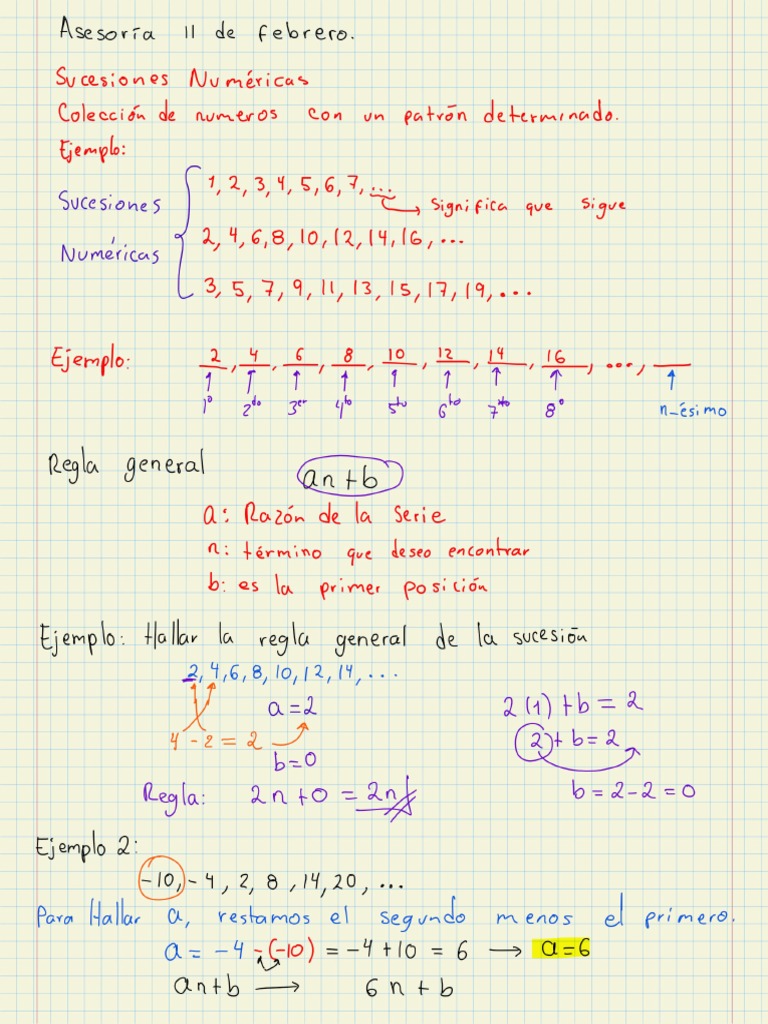 Asesoría 11 de febrero.
Sucesiones Numéricas
Colección de numeros con un patrón determinado.
Ejemplo:
Sucesiones Numéricas
1, 2, 3, 4, 5, 6, 7, ...
Significa que sigue
2, 4, 6, 8, 10, 12, 14, 16, ...
3, 5, 7, 9, 11, 13, 15, 17, 19, ...
Ejemplo: 2, 4, 6, 8, 10, 12, 14, 16, ..., __
1° 2do 3er 4to 5to 6to 7mo 8° n-ésimo
Regla general an+b
a: Razón de la serie
n: término que deseo encontrar
b: es la primer posición
Ejemplo: Hallar la regla general de la sucesión
2, 4, 6, 8, 10, 12, 14, ...
a = 2
2(1) + b = 2
4 - 2 = 2
2 + b = 2
b = 0
b = 2 - 2 = 0
Regla: 2n + 0 = 2n
Ejemplo 2:
-10, -4, 2, 8, 14, 20, ...
Para Hallar a, restamos el segundo menos el primero.
a = -4 -(-10) = -4 + 10 = 6 → a = 6
an+b → 6n + b